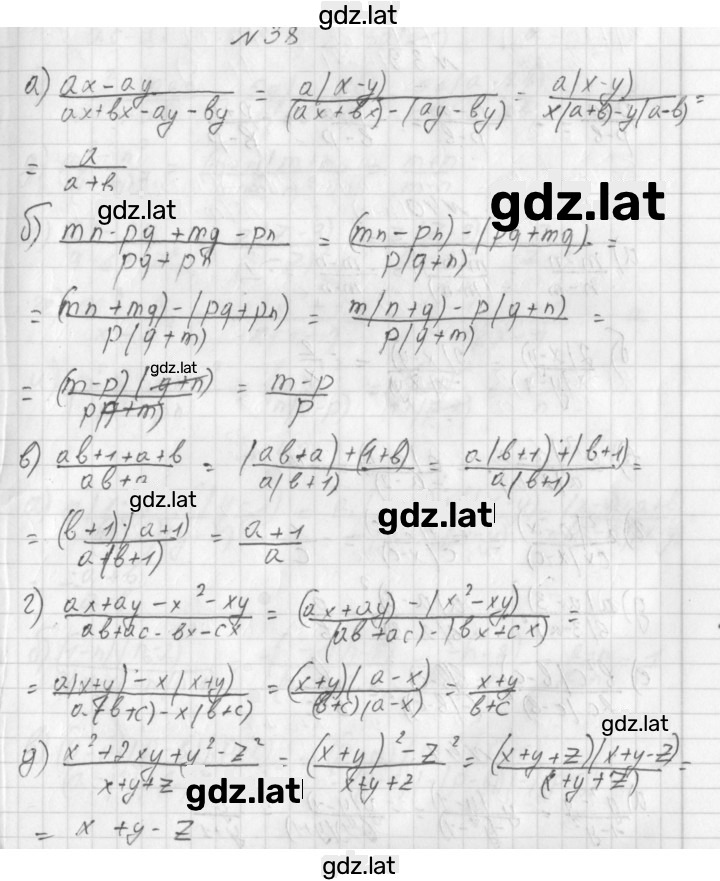 gdz.lat
№38
а) (ax-ay)/(ax+bx-ay-by) = a(x-y)/((ax+bx)-(ay-by)) = a(x-y)/(x(a+b)-y(a-b)) =
= a/(a+b)
gdz.lat
gdz.lat
б) (mn-pq+mq-pn)/(pq+pn) = ((mn-pn)-(pq+mq))/(p(q+n)) =
= ((mn+mq)-(pq+pn))/(p(q+m)) = (m(n+q)-p(q+n))/(p(q+m)) =
gdz.lat
= ((m-p)(q+n))/(p(q+m)) = (m-p)/p
в) (ab+1+a+b)/(ab+a) = ((ab+a)+(1+b))/(a(b+1)) = (a(b+1)+(b+1))/(a(b+1)) =
gdz.lat
gdz.lat
= ((b+1)(a+1))/(a(b+1)) = (a+1)/a
г) (ax+ay-x²-xy)/(ab+ac-bx-cx) = ((ax+ay)-(x²-xy))/((ab+ac)-(bx+cx)) =
= (a(x+y)-x(x+y))/(a(b+c)-x(b+c)) = ((x+y)(a-x))/((b+c)(a-x)) = (x+y)/(b+c)
gdz.lat
д) (x²+2xy+y²-z²)/(x+y+z) = ((x+y)²-z²)/(x+y+z) = ((x+y+z)(x+y-z))/(x+y+z) =
gdz.lat
= x+y-z
gdz.lat